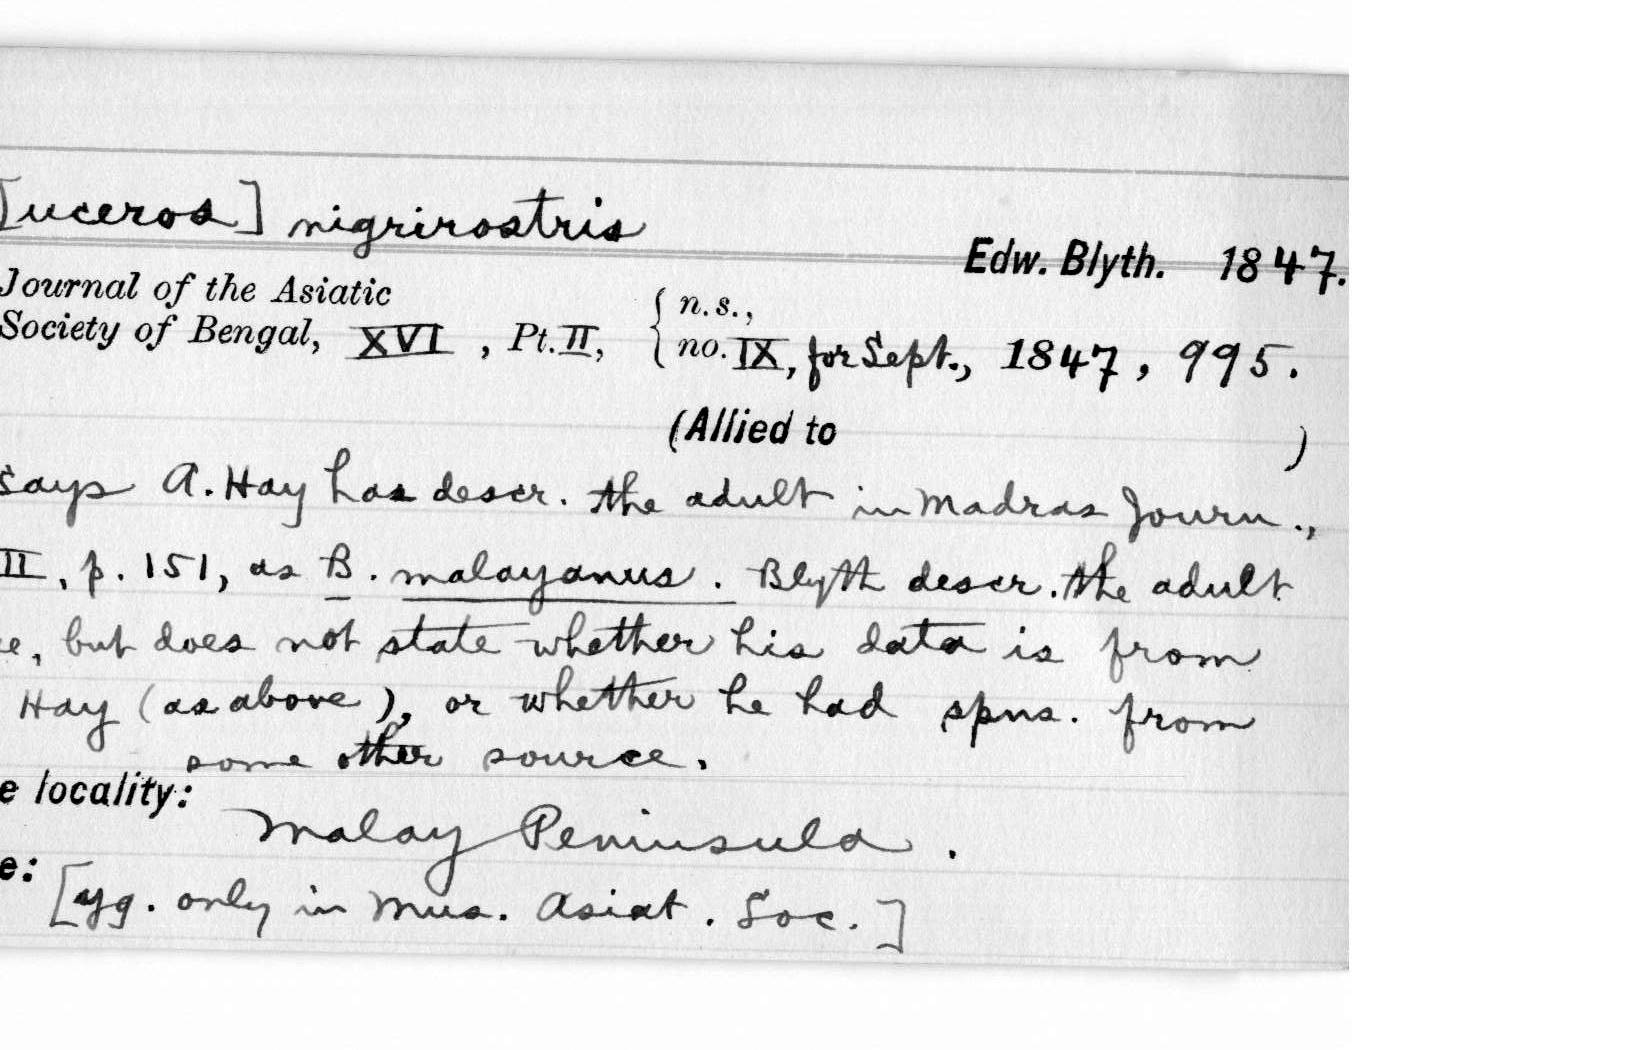 [uceros] nigrirostris
Edw. Blyth. 1847.
Journal of the Asiatic
Society of Bengal, XVI, Pt. II, { n.s., no. IX, for Sept., 1847, 995.
(Allied to )
says A. Hay has descr. the adult in Madras Journ.,
II, p. 151, as B. malayanus. Blyth descr. the adult
e, but does not state whether his data is from
Hay (as above), or whether he had spns. from
some other source.
e locality:
Malay Peninsula.
e: [yg. only in Mus. Asiat. Soc.]